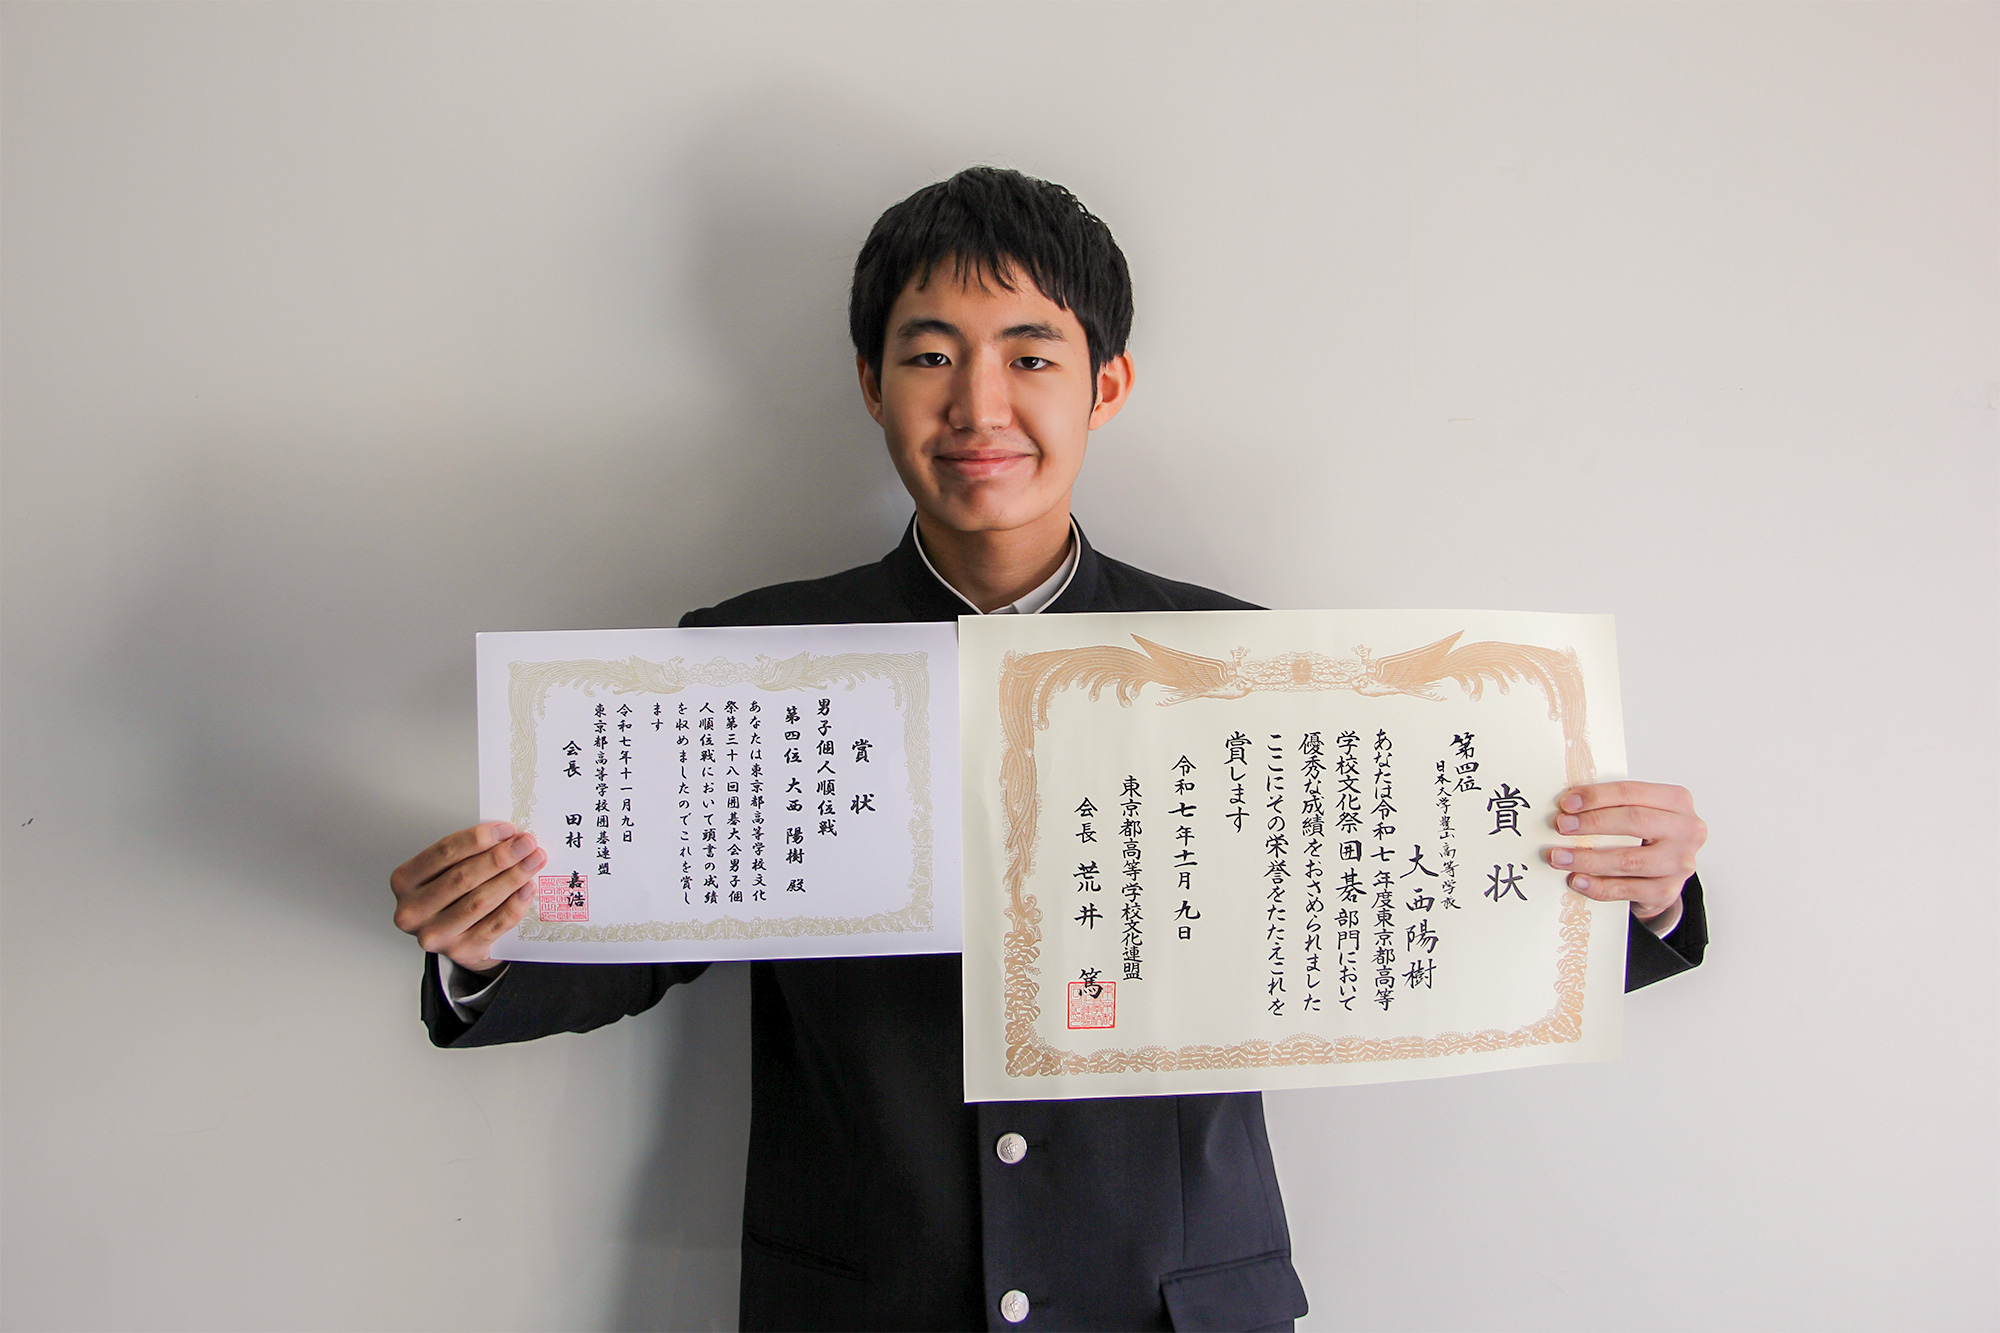 賞状
男子個人順位戦
第四位 大西 陽樹 殿
あなたは東京都高等学校文化
祭第三十八回囲碁大会男子個
人順位戦において頭書の成績
を収めましたのでこれを賞し
ます
令和七年十一月九日
東京都高等学校囲碁連盟
会長 田村 嘉浩
賞状
第四位
日本大学豊山高等学校
大西陽樹
あなたは令和七年度東京都高等
学校文化祭囲碁部門において
優秀な成績をおさめられました
ここにその栄誉をたたえこれを
賞します
令和七年十一月九日
東京都高等学校文化連盟
会長 荒井 篤